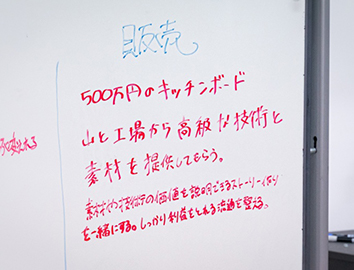 販売
500万円のキッチンボード
山と工場から高級な技術と
素材を提供してもらう。
素材や技術の価値を説明できるストーリー作り
を一緒にする。しっかり利益をとれる流通を整える。